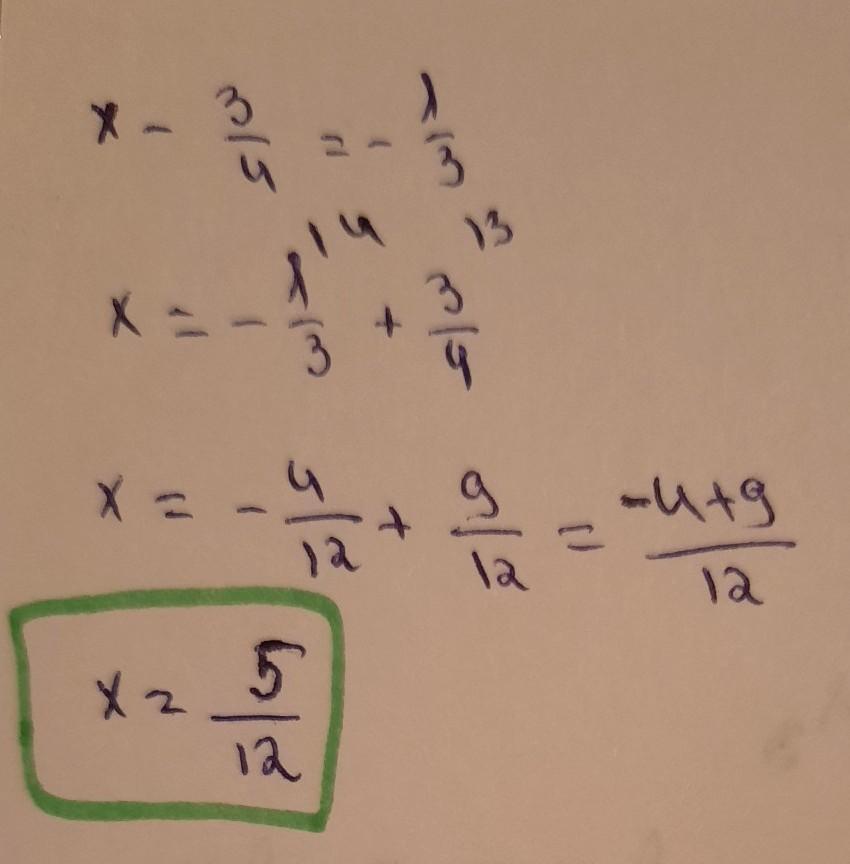 x - 3/4 = - 1/3
/4 /3
x = - 1/3 + 3/4
x = - 4/12 + 9/12 = -4+9/12
x = 5/12